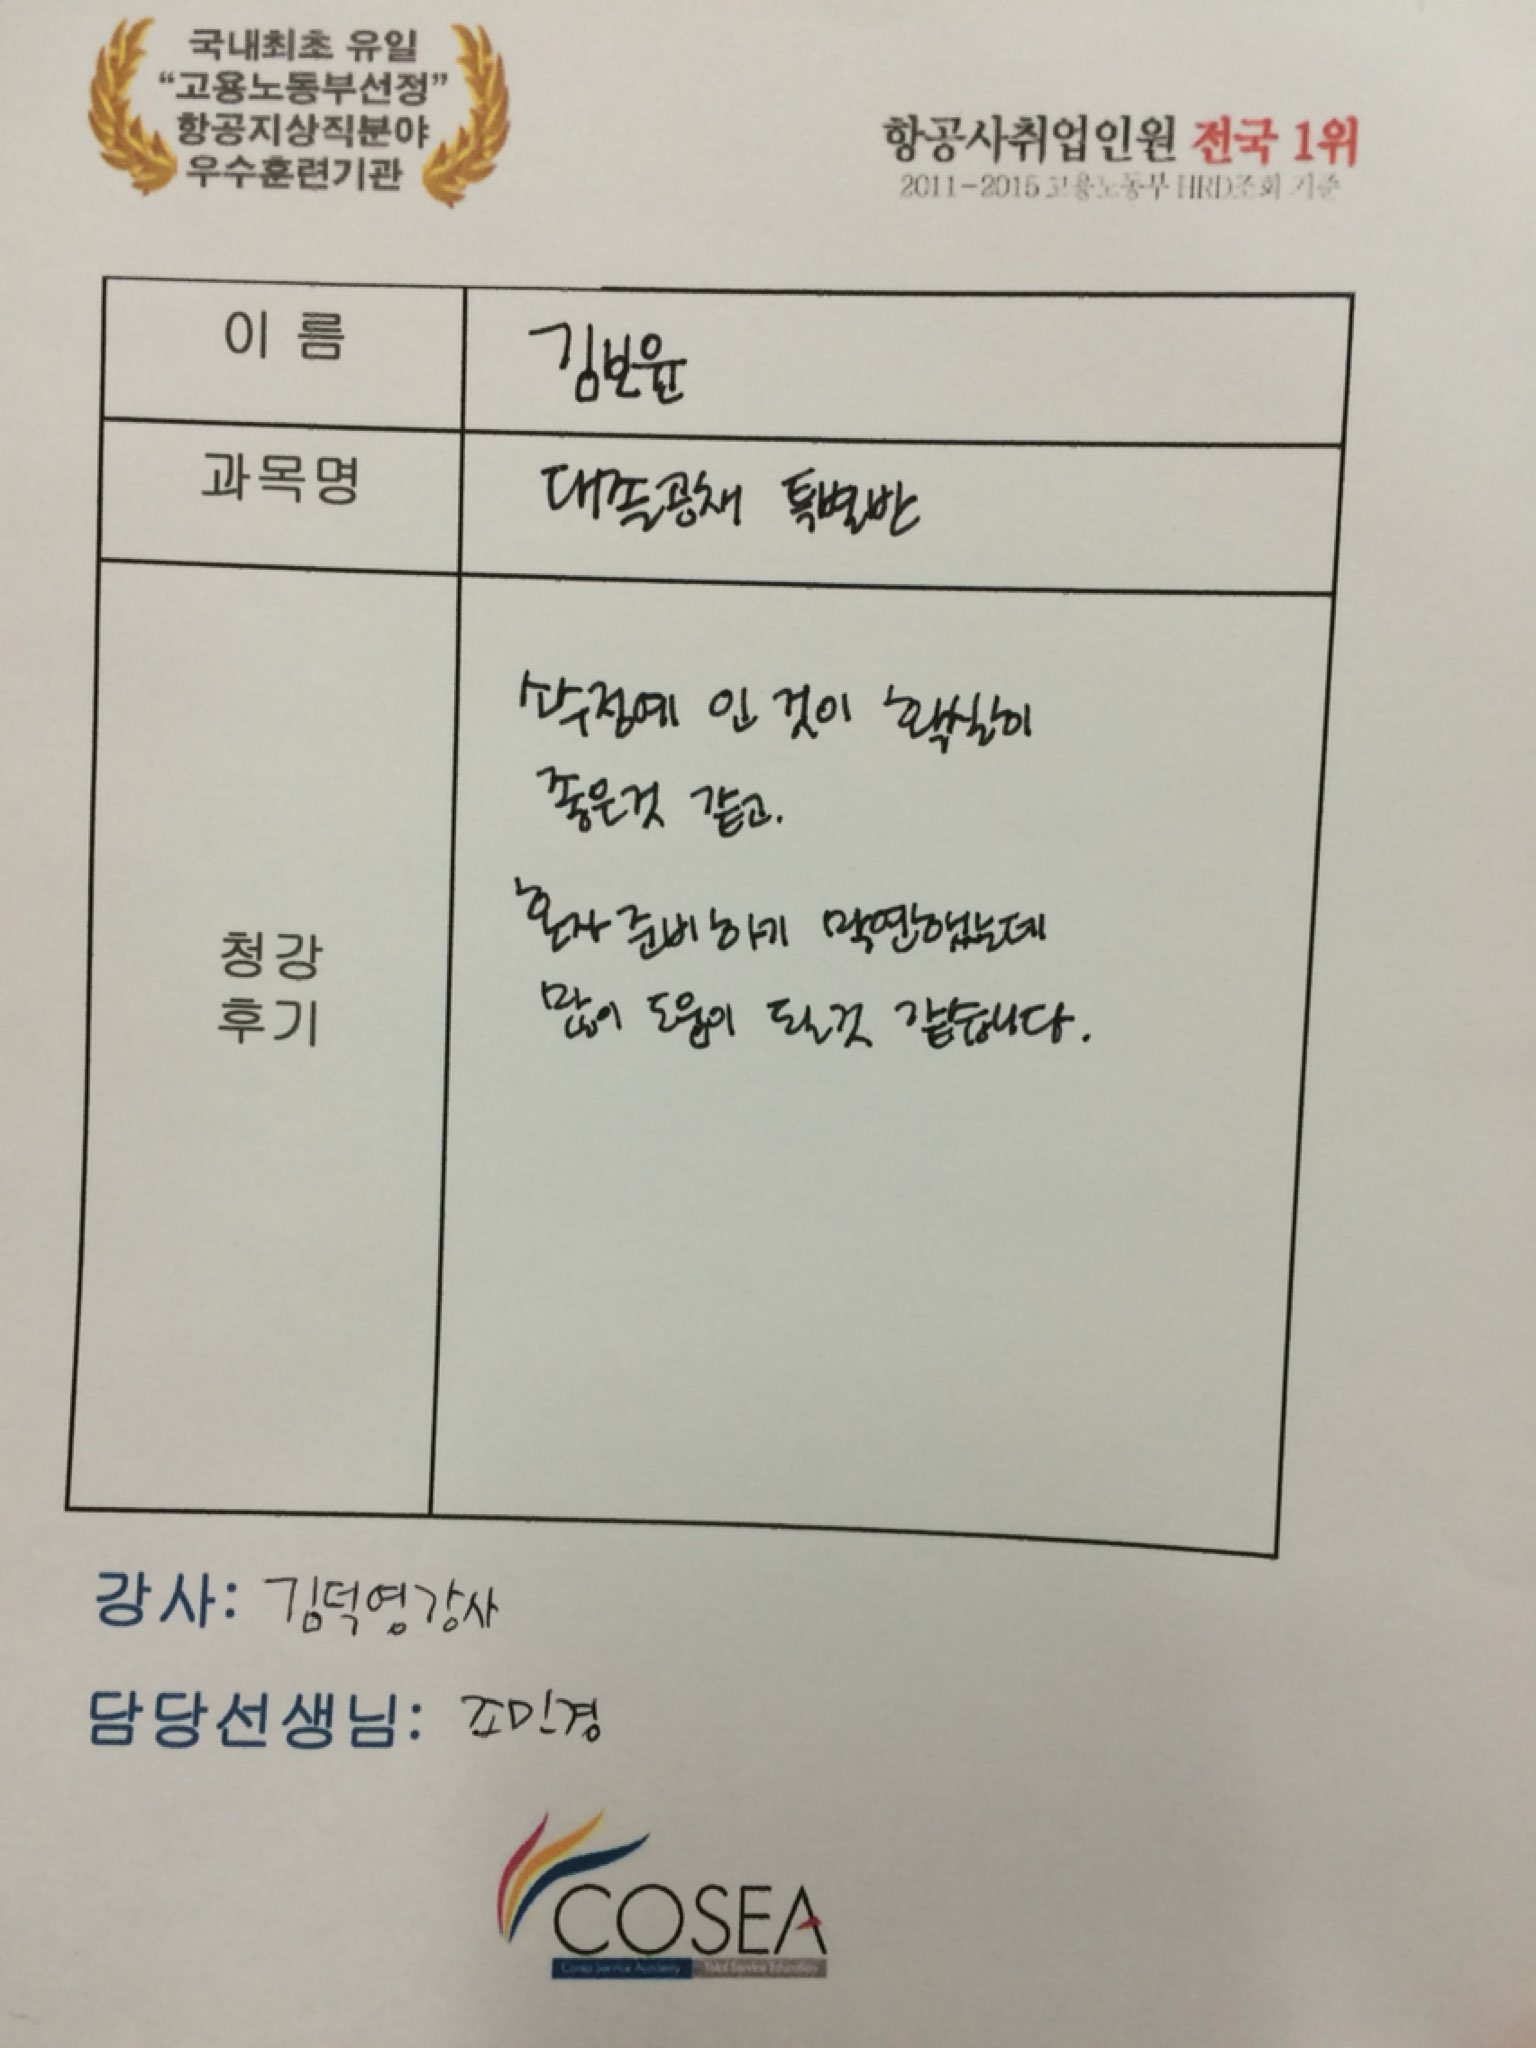 국내최초 유일
“고용노동부선정”
항공지상직분야
우수훈련기관
항공사취업인원 전국 1위
2011-2015 고용노동부 HRD조회 기준
이 름
김보윤
과목명
대졸공채 특별반
청강
후기
소수정예 인 것이 확실히
좋은것 같고.
혼자 준비하기 막연했는데
많이 도움이 될것 같습니다.
강사: 김덕영강사
담당선생님: 조민경
COSEA
Corea Service Academy Total Service Education